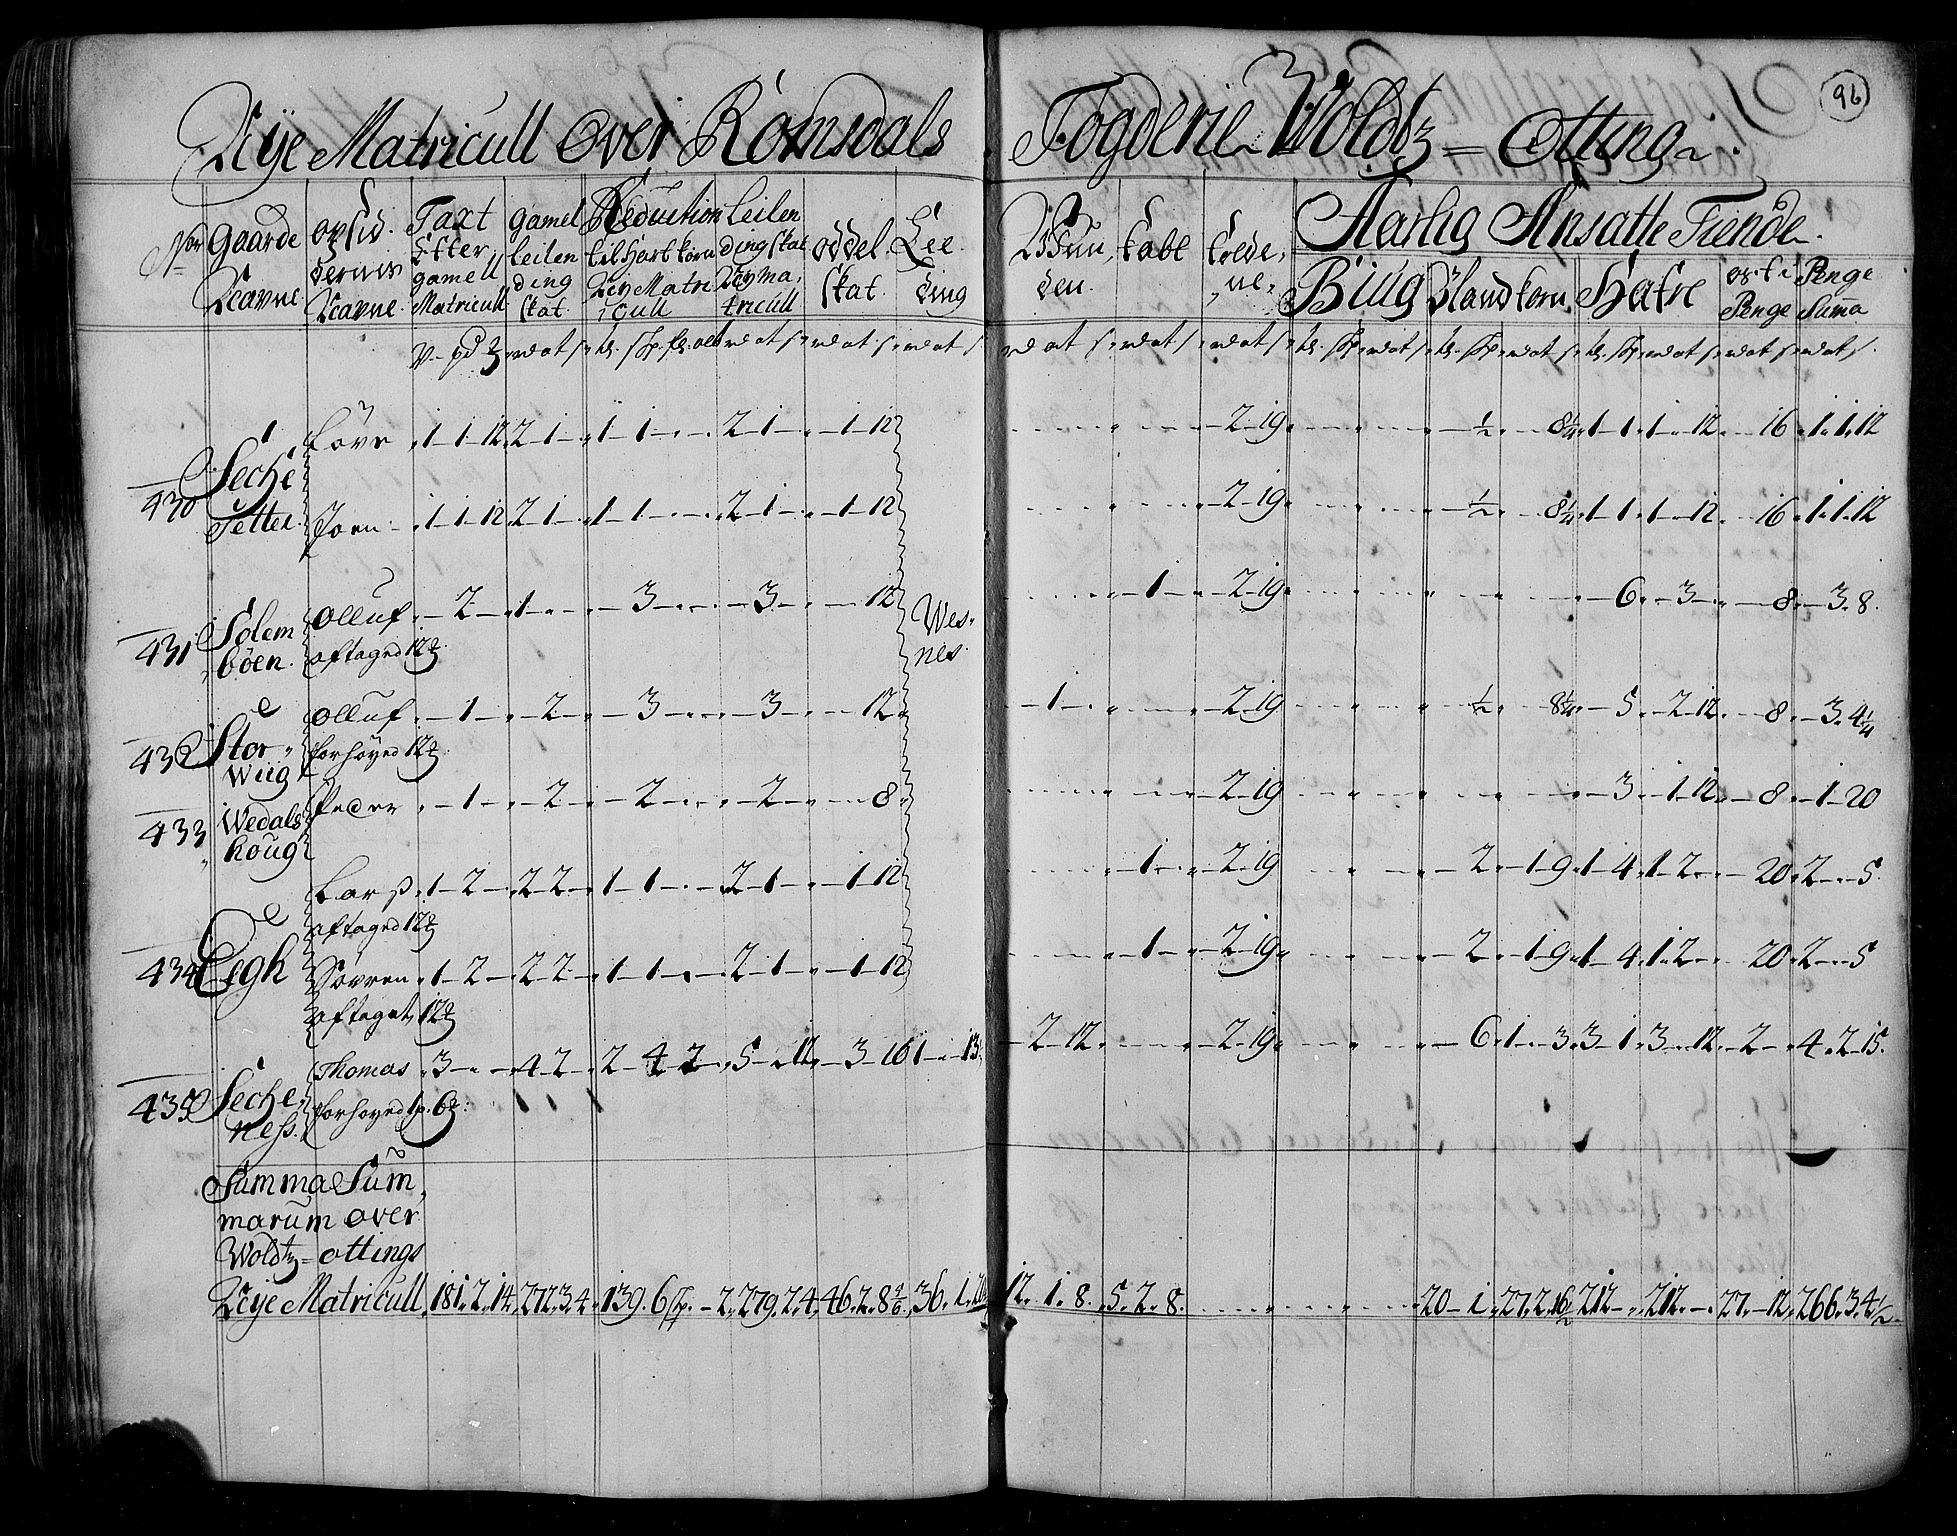 96
Neÿe Matricull Over Romsdals Fogderie Woldtz = Otting
Nor Gaarde Navne
opsid. dernis Navne
Taxt Efter gamell Matricull
gamel leilen ding skat
Reduction til Hart korn Neÿ Matricull
Leilen ding skat Neÿ Ma, tricull
oddel skat
Lee ding
Wun, den
tabt
følde, ne
Aarlig Ansatte Tiende
Biug Bland korn Hafre oste Penge Penge Suma
430 Seche Setter
Lövr 1-1-12 2-1 1-1 2-1 1-12 2-19 ½ 8¼ 1-1 1-12 16 1.1.12
Joen 1-1-12 2-1 1-1 2-1 1-12 2-19 ½ 8¼ 1-1 1-12 16 1.1.12
431 Solem böen
olluf 2 1 3 3 12 1 2-19 6 3 8 3.8
aftaged 12
Wes= nes
432 Stor= Wiig
olluf 1 2 3 3 12 1 2-19 ½ 8¼ 5 2-12 8 3.4¼
forhöyed 12
433 Wedals houg
Peder 1 2 2 2 8 2-19 3 1-12 8 1-20
434 Eegh
Lars 1-2 2-2 1-1 2-1 1-12 1 2-19 2 1-9 1-4 1-2 20 2-5
aftaged 12
Sörren 1-2 2-2 1-1 2-1 1-12 1 2-19 2 1-9 1-4 1-2 20 2-5
aftaget 12
435 Seche, ness
Thomas 3 4-2 2-4-2 5-12 3-16 1-13 2-12 2-19 6 1-3 3-1 3-12 2 4.2-15
forhöyed 1p. 6
Summa Sum,
marum over
Woldtz = ottings
Neÿe Matricull 181.2.14 272.3.4 139.6 2 279.2.4 46.2.8 36.1 12.1.8 5.2.8 20-1 27.2.16½ 212 212 27.-12 266.3.4½